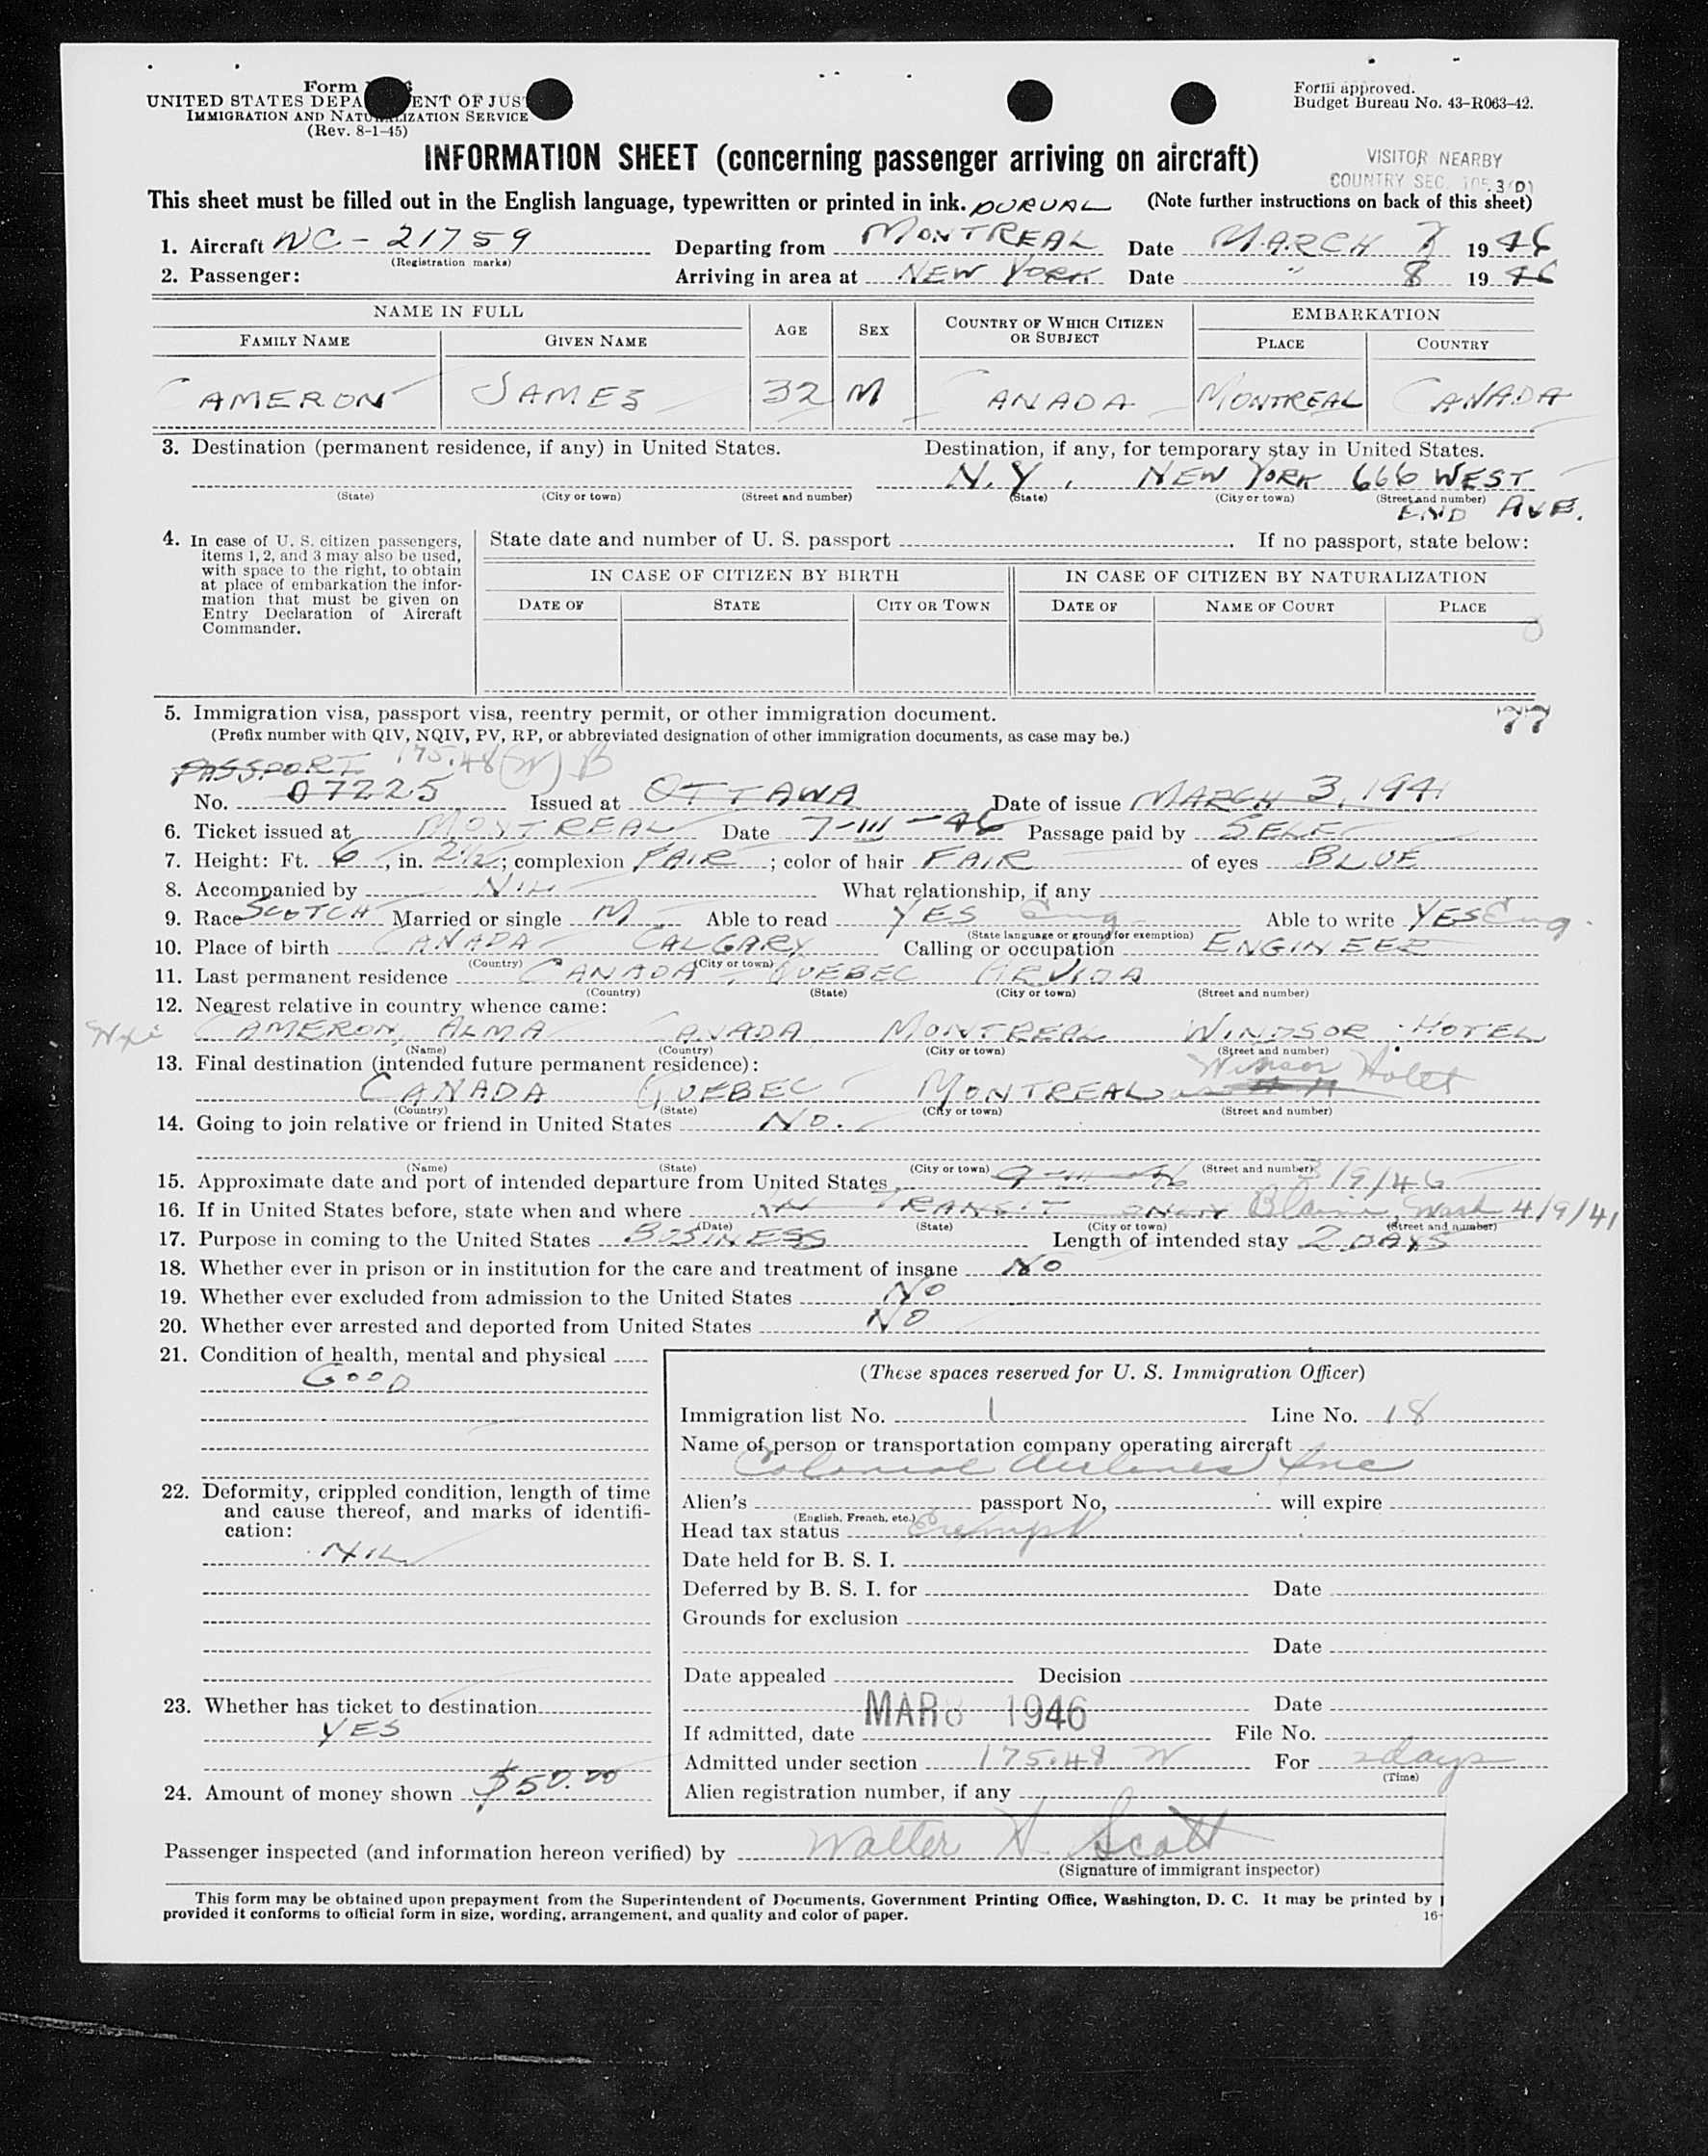 Form
UNITED STATES DEPA ENT OF JUS
IMMIGRATION AND NATURALIZATION SERVICE
(Rev. 8-1-45)
Form approved.
Budget Bureau No. 43-R063-42.
INFORMATION SHEET (concerning passenger arriving on aircraft)
VISITOR NEARBY
COUNTRY SEC. 3(D)
This sheet must be filled out in the English language, typewritten or printed in ink. (Note further instructions on back of this sheet)
1. Aircraft NC-21759 Departing from MONTREAL Date MARCH 7 1946
(Registration marks)
2. Passenger: Arriving in area at NEW YORK Date " 8 1946
NAME IN FULL AGE SEX COUNTRY OF WHICH CITIZEN OR SUBJECT EMBARKATION
FAMILY NAME GIVEN NAME PLACE COUNTRY
CAMERON JAMES 32 M CANADA MONTREAL CANADA
3. Destination (permanent residence, if any) in United States. Destination, if any, for temporary stay in United States.
N.Y. NEW YORK 666 WEST
(State) (City or town) (Street and number) (State) (City or town) (Street and number)
END AVE.
4. In case of U. S. citizen passengers, items 1, 2, and 3 may also be used, with space to the right, to obtain at place of embarkation the information that must be given on Entry Declaration of Aircraft Commander.
State date and number of U. S. passport If no passport, state below:
IN CASE OF CITIZEN BY BIRTH IN CASE OF CITIZEN BY NATURALIZATION
DATE OF STATE CITY OR TOWN DATE OF NAME OF COURT PLACE
5. Immigration visa, passport visa, reentry permit, or other immigration document. 77
(Prefix number with QIV, NQIV, PV, RP, or abbreviated designation of other immigration documents, as case may be.)
PASSPORT 175.48(W) B
No. 07225 Issued at OTTAWA Date of issue MARCH 3, 1941
6. Ticket issued at MONTREAL Date 7-III-46 Passage paid by SELF
7. Height: Ft. 6, in. 2 1/2; complexion FAIR; color of hair FAIR of eyes BLUE
8. Accompanied by NIL What relationship, if any
9. Race SCOTCH Married or single M Able to read YES Eng Able to write YES Eng.
(State language or ground for exemption)
10. Place of birth CANADA CALGARY Calling or occupation ENGINEER
(Country) (City or town)
11. Last permanent residence CANADA, QUEBEC ARVIDA
(Country) (State) (City or town) (Street and number)
12. Nearest relative in country whence came:
CAMERON, ALMA CANADA MONTREAL WINDSOR HOTEL
(Name) (Country) (City or town) (Street and number)
13. Final destination (intended future permanent residence):
CANADA QUEBEC MONTREAL Winsor Hotel
(Country) (State) (City or town) (Street and number)
14. Going to join relative or friend in United States NO.
(Name) (State) (City or town) (Street and number)
15. Approximate date and port of intended departure from United States 9-III-46 3/9/46
16. If in United States before, state when and where IN TRANSIT ONLY Blaine, Wash 4/9/41
(Date) (State) (City or town) (Street and number)
17. Purpose in coming to the United States BUSINESS Length of intended stay 2 DAYS
18. Whether ever in prison or in institution for the care and treatment of insane NO
19. Whether ever excluded from admission to the United States NO
20. Whether ever arrested and deported from United States NO
21. Condition of health, mental and physical
GOOD
22. Deformity, crippled condition, length of time and cause thereof, and marks of identification:
NIL
23. Whether has ticket to destination
YES
24. Amount of money shown $50.00
(These spaces reserved for U. S. Immigration Officer)
Immigration list No. 1 Line No. 18
Name of person or transportation company operating aircraft
Colonial Airlines Inc
Alien's passport No, will expire
(English, French, etc.)
Head tax status Exempt
Date held for B. S. I.
Deferred by B. S. I. for Date
Grounds for exclusion
Date
Date appealed Decision
Date
If admitted, date MAR 8 1946 File No.
Admitted under section 175.48 W For 2 days
(Time)
Alien registration number, if any
Passenger inspected (and information hereon verified) by Walter A Scott
(Signature of immigrant inspector)
This form may be obtained upon prepayment from the Superintendent of Documents, Government Printing Office, Washington, D. C. It may be printed by
provided it conforms to official form in size, wording, arrangement, and quality and color of paper. 16-